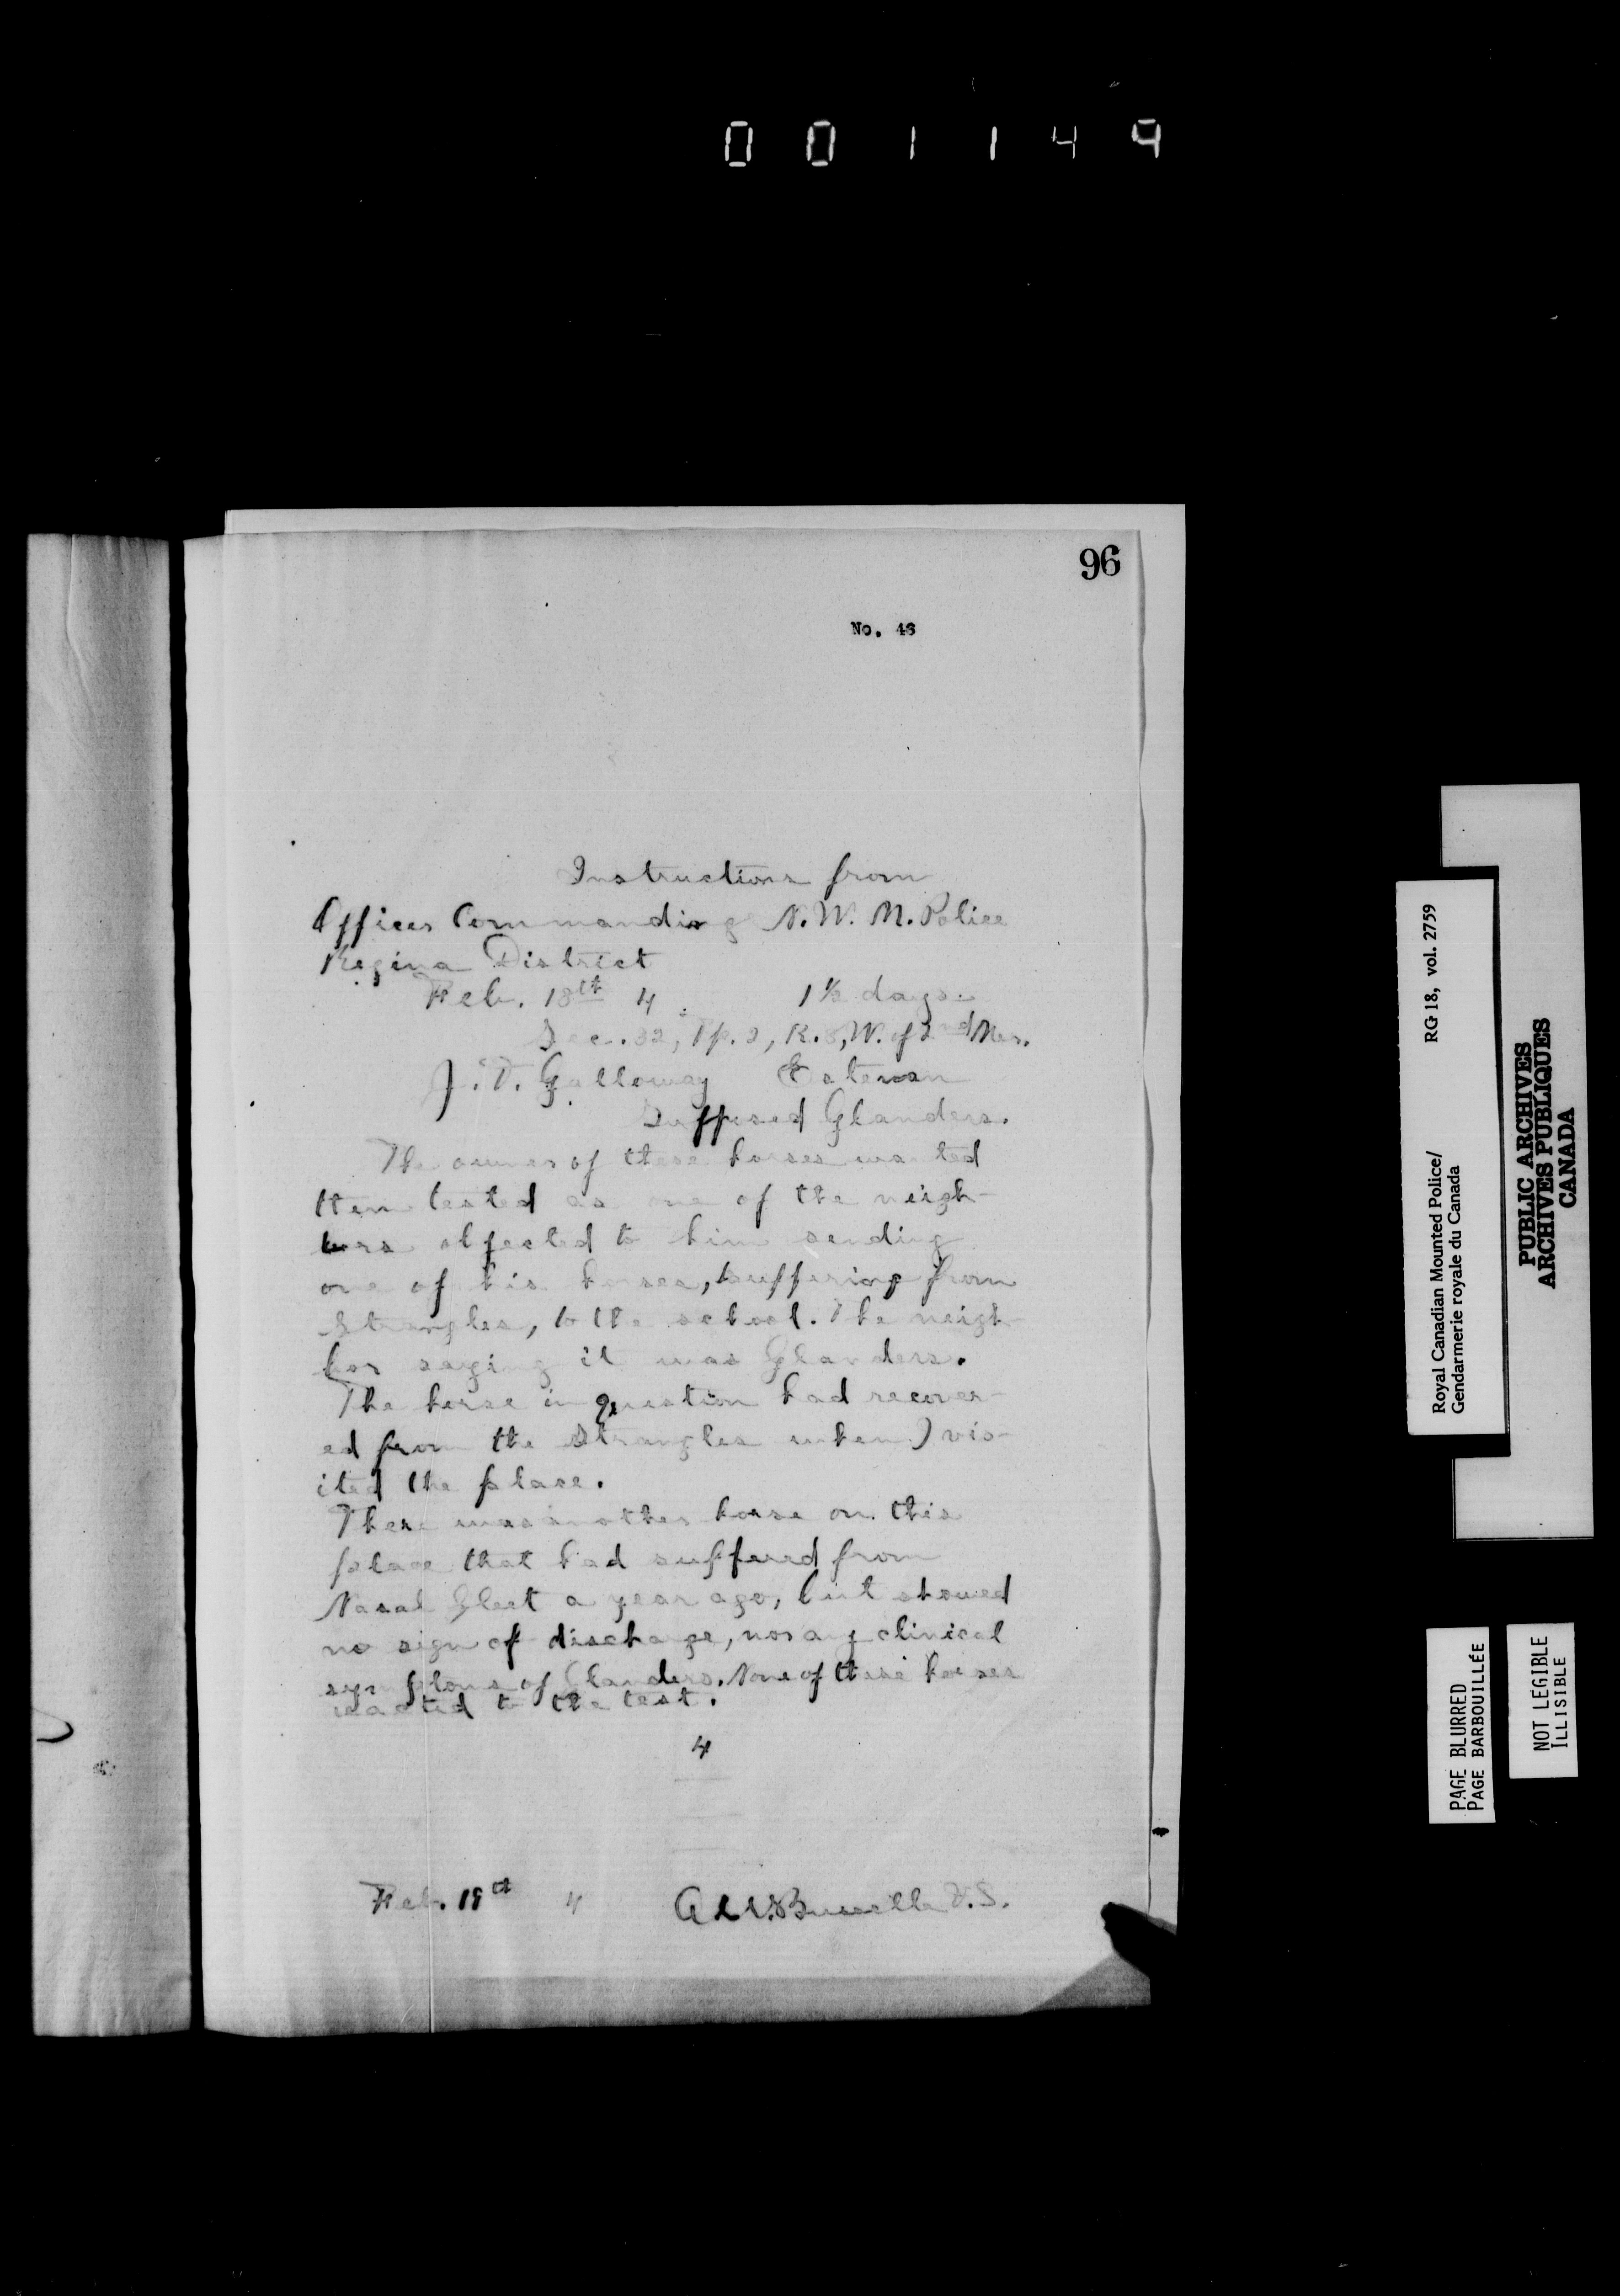 001149
96
No. 46
Instructions from
Officer Commanding N. W. M. Police
Regina District
Feb. 18th 4 1½ days.
Sec. 32, Tp. 2, R. 8, W. of 2nd Mer.
J. D. Galloway Estevan
Supposed Glanders.
The owner of these horses wanted
them tested as one of the neigh-
bors objected to him sending
one of his horses, suffering from
Strangles, to the school. The neigh-
bor saying it was Glanders.
The horse in question had recover-
ed from the Strangles when I vis-
ited the place.
There was another horse on this
place that had suffered from
Nasal Gleet a year ago, but showed
no sign of discharge, nor any clinical
symptoms of Glanders. None of these horses
reacted to the test.
4
Feb. 19th 4 V.S.
Royal Canadian Mounted Police/ RG 18, vol. 2759
Gendarmerie royale du Canada
PUBLIC ARCHIVES
ARCHIVES PUBLIQUES
CANADA
PAGE BLURRED
PAGE BARBOUILLÉE
NOT LEGIBLE
ILLISIBLE